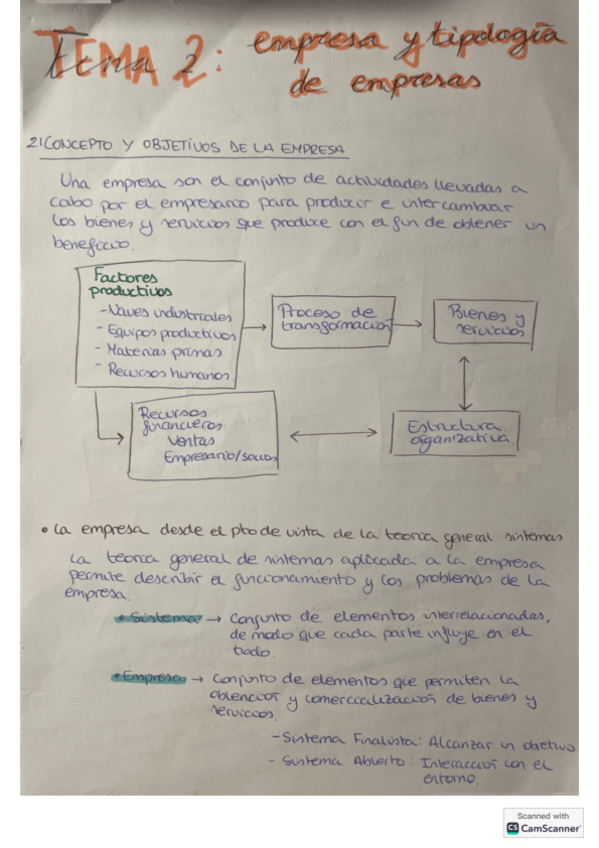 TEMA 2: empresa y tipología
de empresas
2.1 CONCEPTO Y OBJETIVOS DE LA EMPRESA
Una empresa son el conjunto de actividades llevadas a
cabo por el empresario para producir e intercambiar
los bienes y servicios que produce con el fin de obtener un
beneficio.
Factores
productivos
- Naves industriales
- Equipos productivos
- Materias primas
- Recursos humanos
Proceso de
transformación
Bienes y
servicios
Recursos
financieros
Ventas
Empresario/socios
Estructura
organizativa
• La empresa desde el pto de vista de la teoría general sistemas
La teoría general de sistemas aplicada a la empresa
permite describir el funcionamiento y los problemas de la
empresa.
• Sistema → Conjunto de elementos interrelacionadas,
de modo que cada parte influye en el
todo.
• Empresa → Conjunto de elementos que permiten la
obtención y comercialización de bienes y
servicios.
- Sistema Finalista: Alcanzar un objetivo
- Sistema Abierto: Interacción con el
entorno.
Scanned with
CS CamScanner